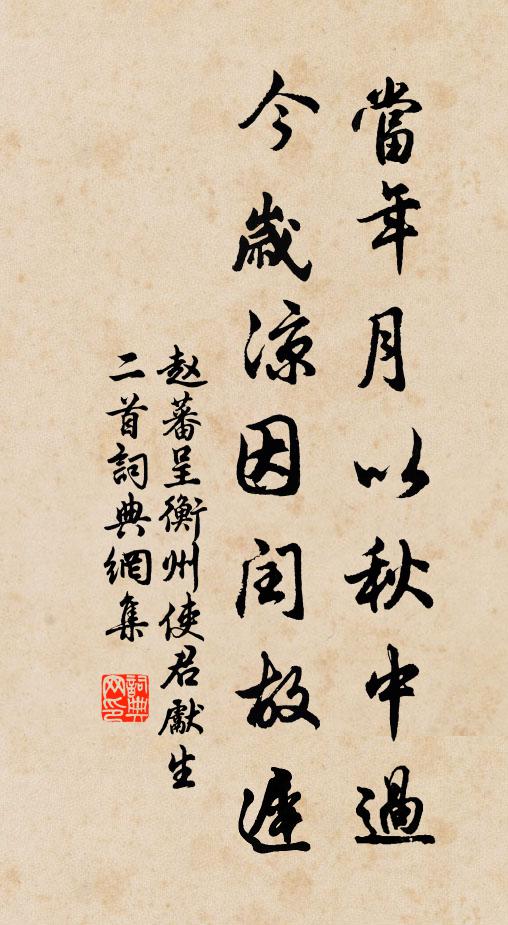 當年月以秋中過
今歲凉因闰故遲
赵蕃呈衡州使君獻生
二首詞典網集
詞典網印